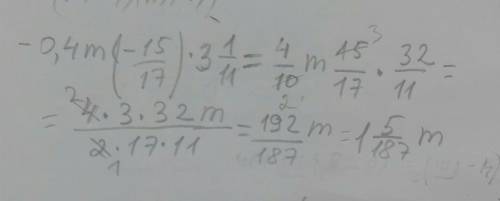 -0,4m(-15/17)·3 1/11 = 4/10 m 45³/17 · 32/11 =
= ²4·3·32m / 2₁·17·11 = 192/187 m = 1 5/187 m